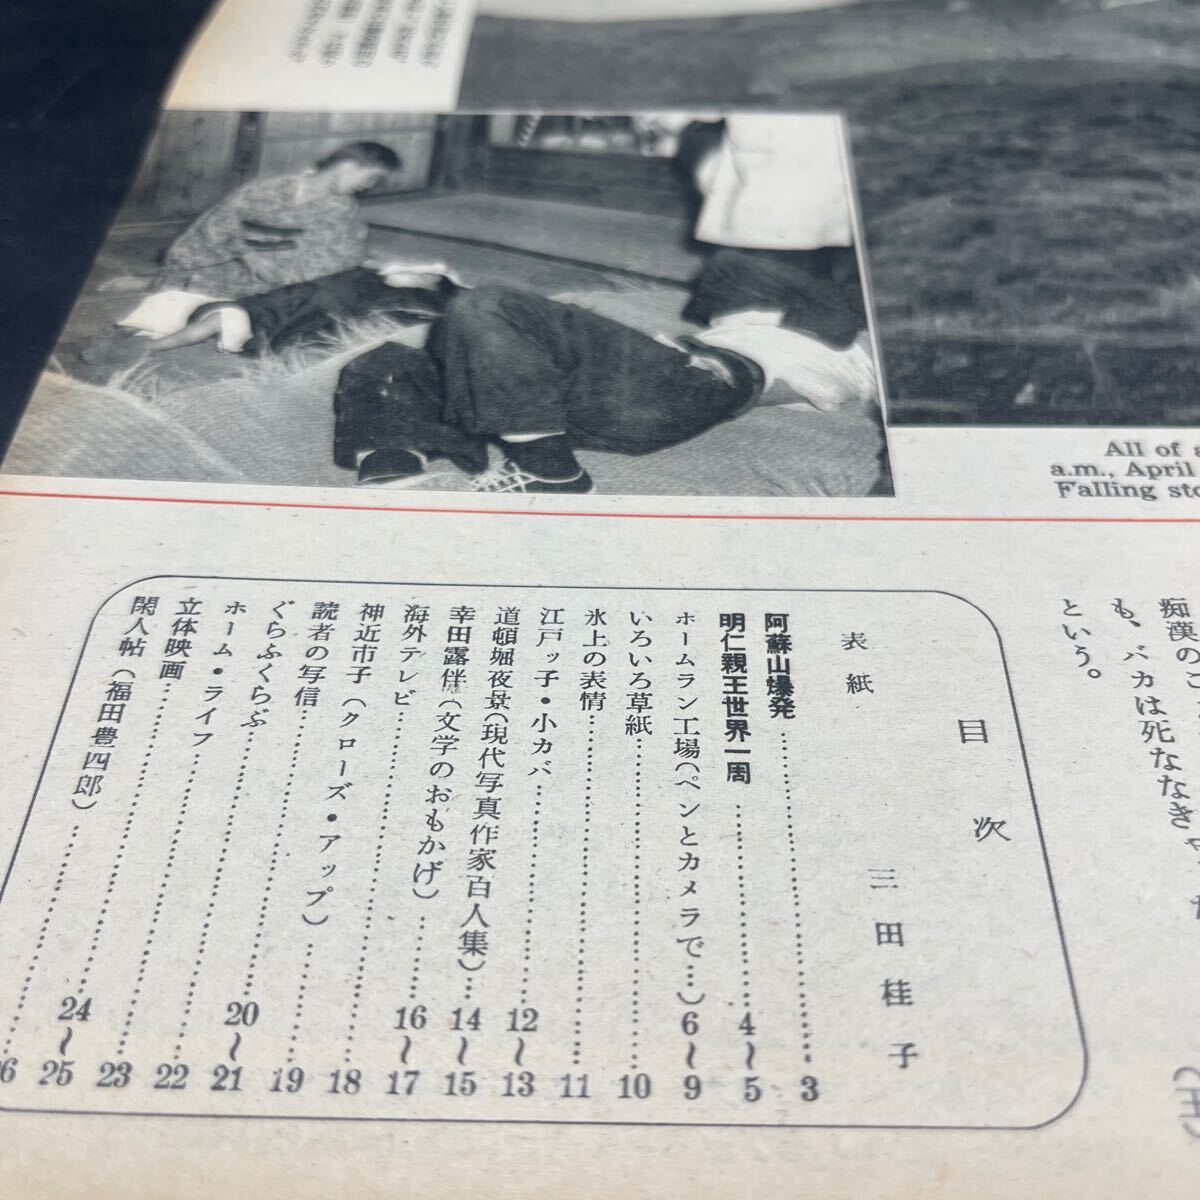 All of a
a.m., April
Falling sto
痴漢のこ
も、バカは死ななき
という。
目次
表紙 三田桂子
阿蘇山爆発……3
明仁親王世界一周……4〜5
ホームラン工場(ペンとカメラで…)6〜9
いろいろ草紙……10
氷上の表情……11
江戸ッ子・小カバ……12〜13
道頓堀夜景(現代写真作家百人集)…14〜15
幸田露伴(文学のおもかげ)……16〜17
海外テレビ……18
神近市子(クローズ・アップ)……19
読者の写信……20〜21
ぐらふくらぶ……22
ホーム・ライフ……23
立体映画……24〜25
閑人帖(福田豊四郎)……26